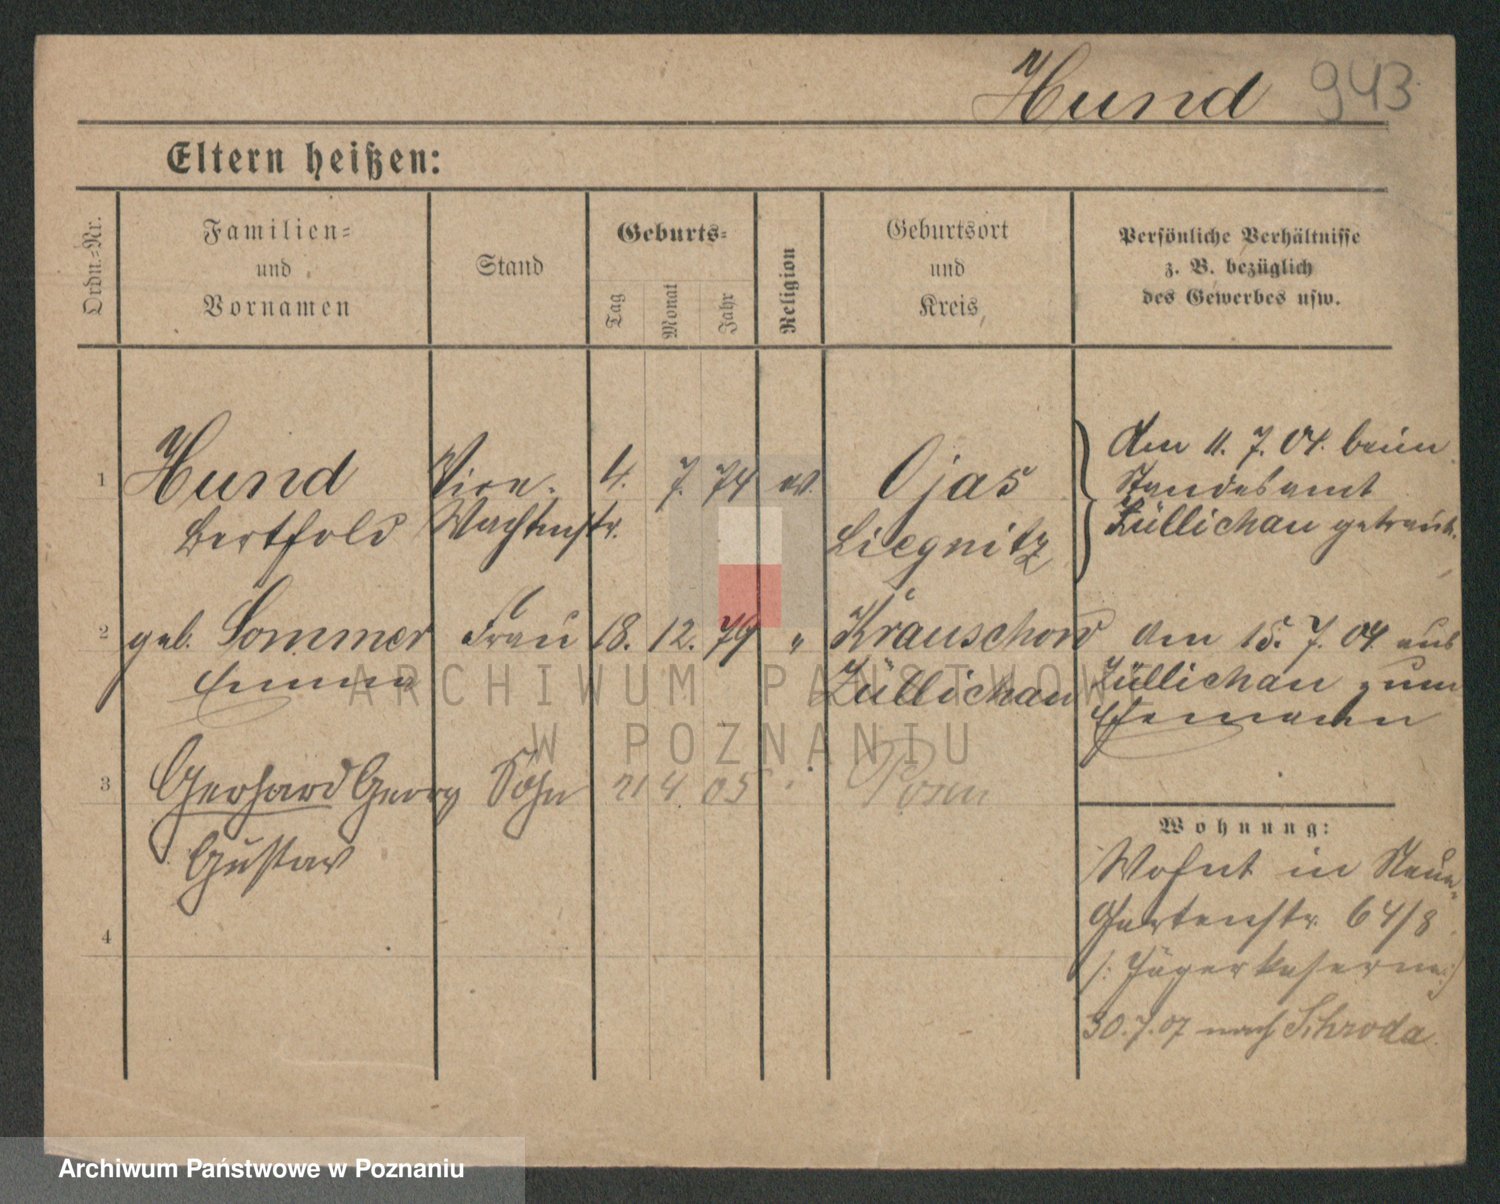 Hund 943
Eltern heißen:
Ordn.-Nr.
Familien-
und
Vornamen
Stand
Geburts-
Tag
Monat
Jahr
Religion
Geburtsort
und
Kreis
Persönliche Verhältnisse
z. B. bezüglich
des Gewerbes usw.
1 Hund Vice- 4. 7. 74 ev. Ojas
Berthold Wachtmstr. Liegnitz
den 11. 7. 04. beim
Standesamt
Züllichau getraut.
2 geb. Sommer Frau 18. 12. 79 " Krauschow
Emma Züllichau
den 15. 7. 04 aus
Züllichau zum
Ehemann
3 Gerhard Georg Sohn 21 4 05 " Posen
Gustav
4
Wohnung:
Wohnt in Neue-
Gartenstr. 64/8
(: Jägerkaserne :)
30. 7. 07 nach Schroda
ARCHIWUM PAŃSTWOW
W POZNANIU
Archiwum Państwowe w Poznaniu